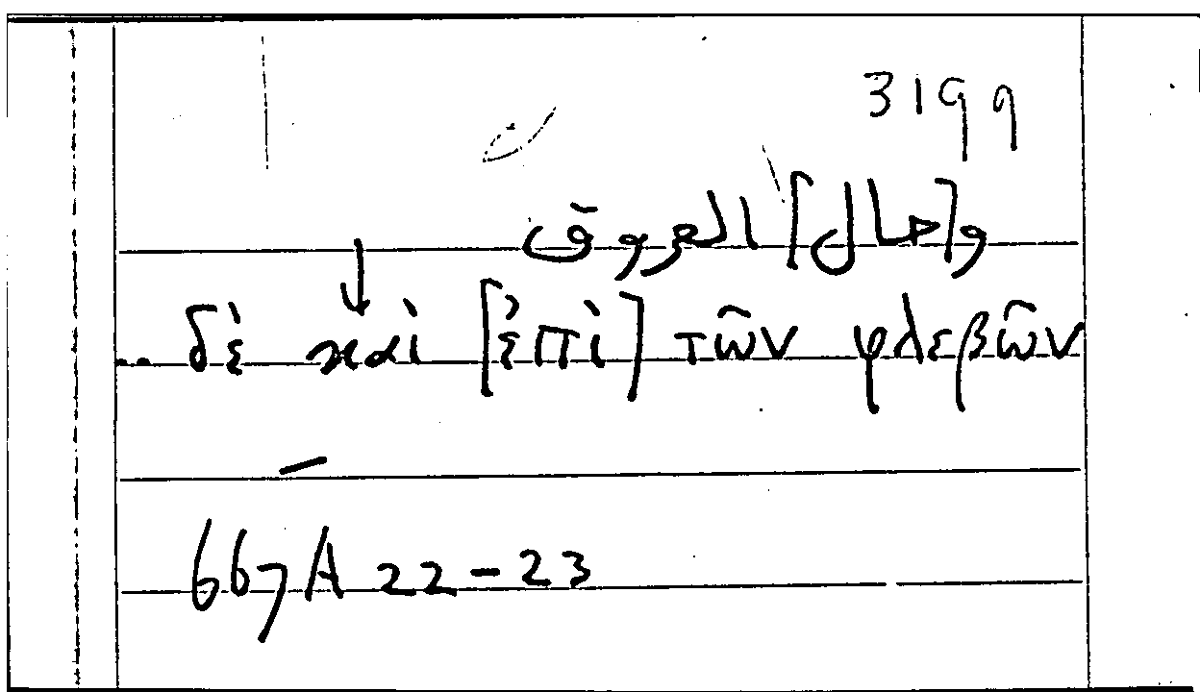 3199
و[حال] العروق
.. δὲ καὶ [ἐπὶ] τῶν φλεβῶν
667A 22-23